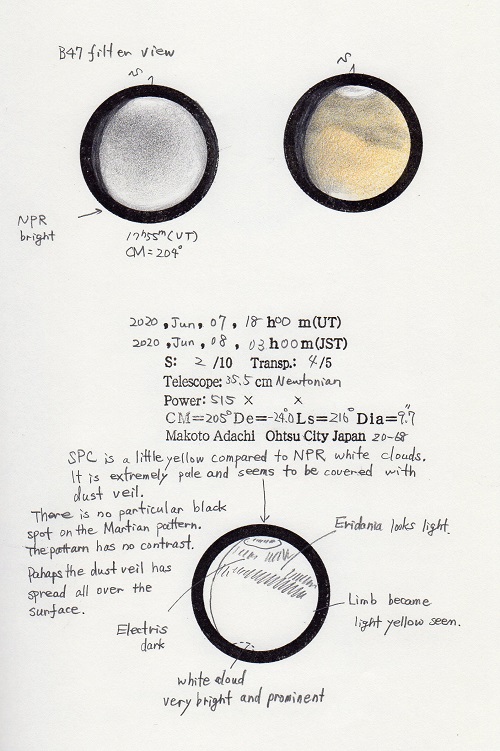 B47 filter view
S
S
NPR
bright
17h55m(UT)
CM=204°
2020, Jun, 07, 18 h00 m(UT)
2020, Jun, 08, 03 h00m(JST)
S: 2 /10 Transp.: 4/5
Telescope: 35.5 cm Newtonian
Power: 515 × ×
CM=205° De=-24.0° Ls=216° Dia=9.7"
Makoto Adachi Ohtsu City Japan 20-68
SPC is a little yellow compared to NPR white clouds.
It is extremely pale and seems to be covered with
dust veil.
There is no particular black
spot on the Martian pattern.
The pattarn has no contrast.
Pahaps the dust veil has
spread all over the
surface.
Eridania looks light.
Electris
dark
Limb became
light yellow seen.
white cloud
very bright and prominent